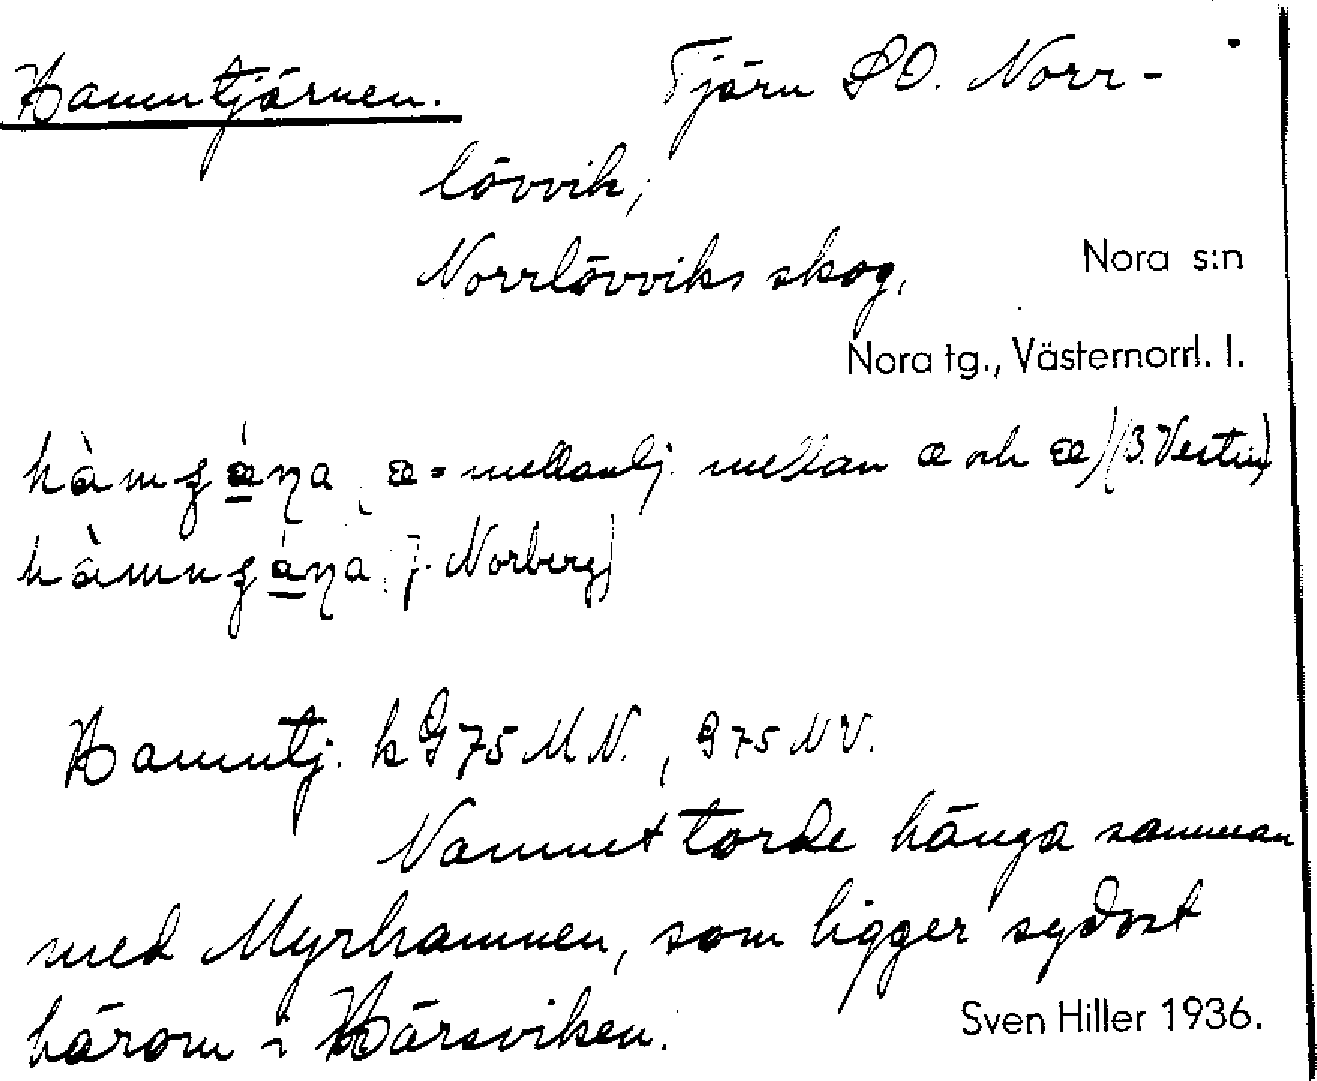 Hamntjärnen. Tjärn SO. Norr-
lövvik,
Norrlövviks skog,
Nora s:n
Nora tg., Västernorrl. l.
mellanlj. mellan a och æ) (B. Vestin)
J. Norberg)
Hamntj. k G 75 M N., G 75 NV.
Namnet torde hänga samman
med Myrhamnen, som ligger sydost
härom i Härsviken.
Sven Hiller 1936.